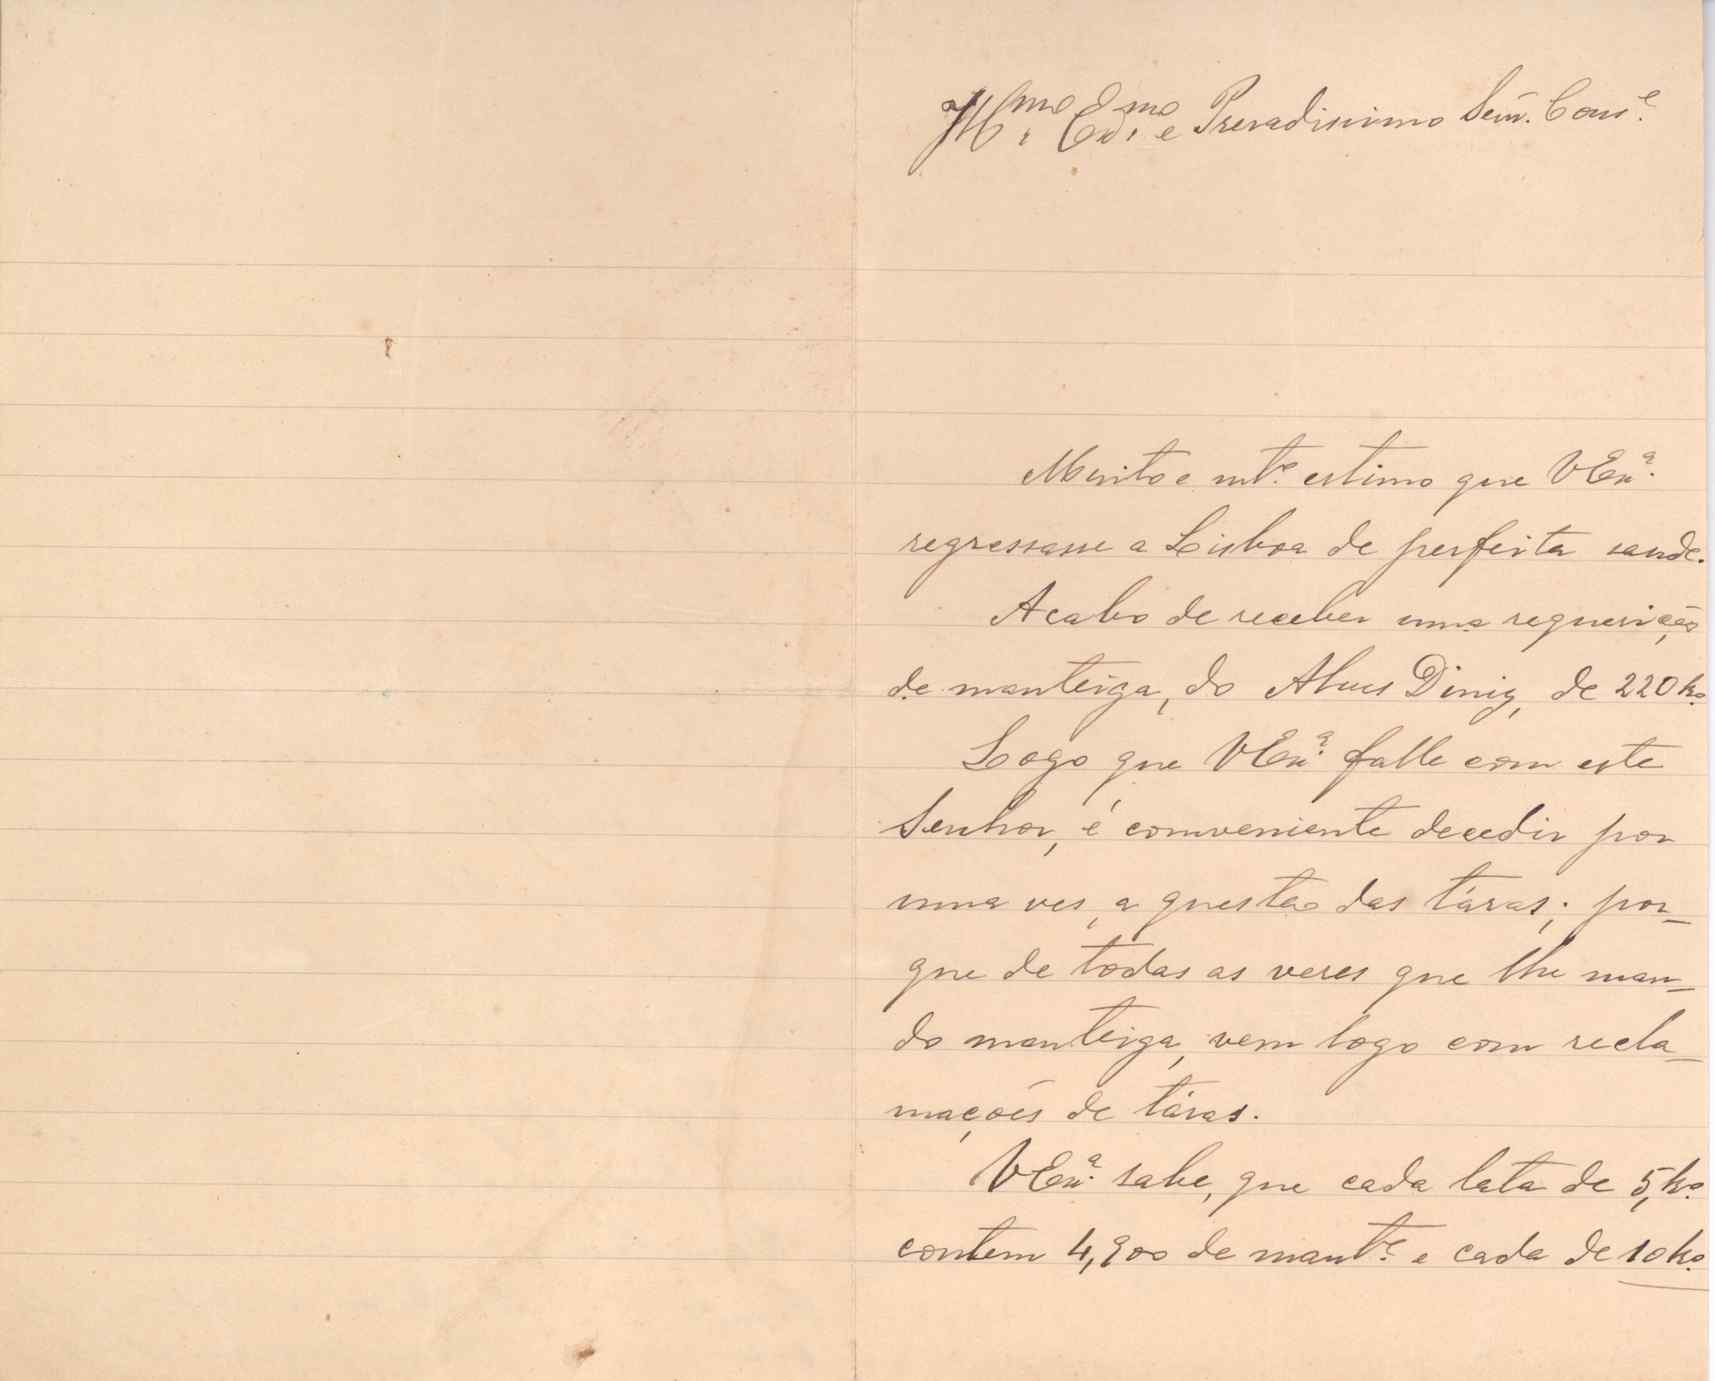 Illmo. Exmo. e Presadissimo Senr. Conse.
Muito e mto. estimo que V Exa.
regressasse a Lisboa de perfeita saude.
Acabo de receber uma requesição
de manteiga, do Alves Diniz, de 220 ko
Logo que V Exa. falle com este
Senhor, é comveniente decedir por
uma ves, a questão das táras; por-
que de todas as veses que lhe man-
do manteiga, vem logo com recla-
mações de táras.
V Exa. sabe, que cada lata de 5, ko
contem 4,900 de mante. e cada de 10 ko